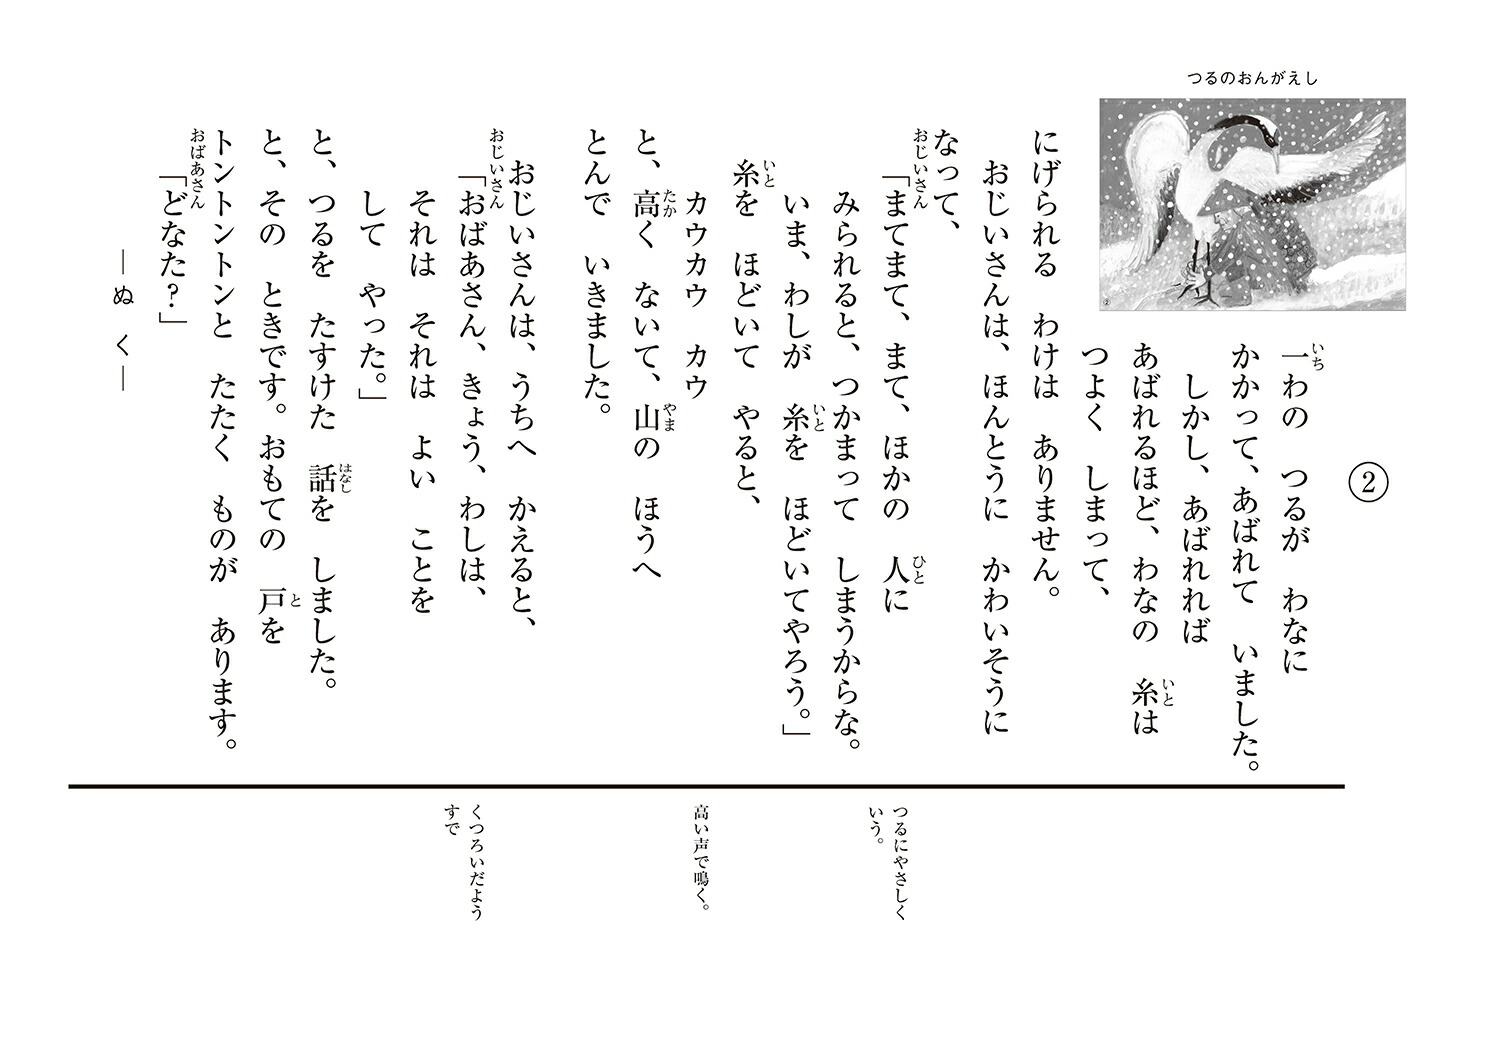 つるのおんがえし
②
一わの　つるが　わなに
かかって、あばれて　いました。
しかし、あばれれば
あばれるほど、わなの　糸は
つよく　しまって、
にげられる　わけは　ありません。
おじいさんは、ほんとうに　かわいそうに
なって、
おじいさん「まてまて、まて、ほかの　人に
みられると、つかまって　しまうからな。
いま、わしが　糸を　ほどいてやろう。」
糸を　ほどいて　やると、
カウカウ　カウ
と、高く　ないて、山の　ほうへ
とんで　いきました。
おじいさんは、うちへ　かえると、
おじいさん「おばあさん、きょう、わしは、
それは　それは　よい　ことを
して　やった。」
と、つるを　たすけた　話を　しました。
と、その　ときです。おもての　戸を
トントントンと　たたく　ものが　あります。
おばあさん「どなた？」
―ぬ　く―
つるにやさしく
いう。
高い声で鳴く。
くつろいだよう
すで